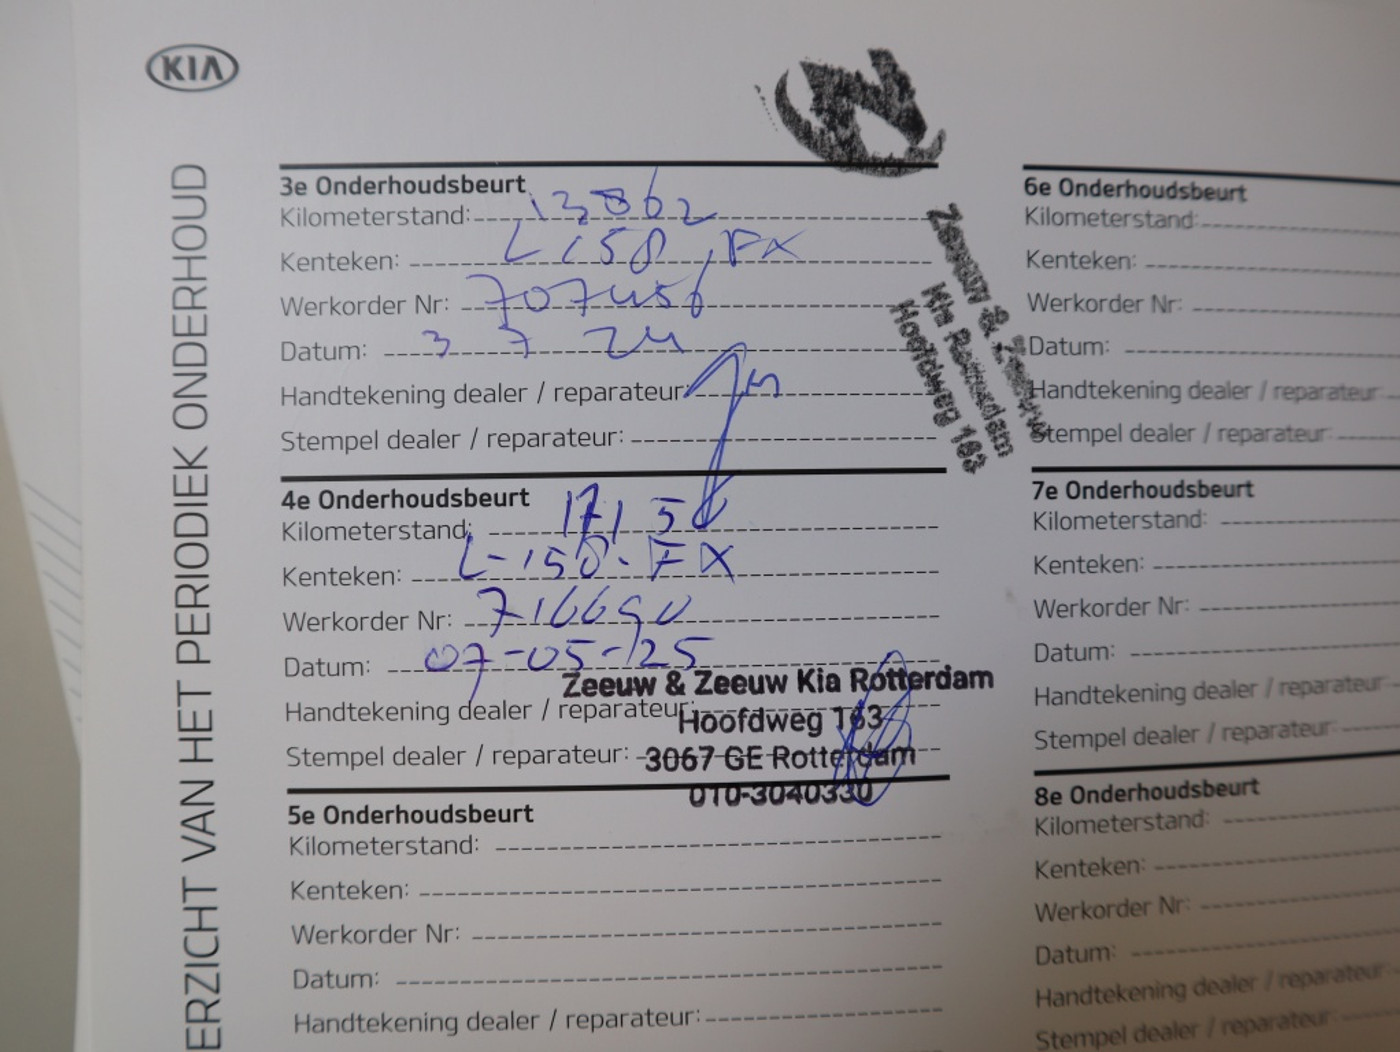 KIA
ERZICHT VAN HET PERIODIEK ONDERHOUD
3e Onderhoudsbeurt
Kilometerstand: 13862
Kenteken: L 158 FX
Werkorder Nr: 707456
Datum: 3 7 24
Handtekening dealer / reparateur:
Stempel dealer / reparateur:
Zeeuw & Zeeuw
Kia Rotterdam
Hoofdweg 163
4e Onderhoudsbeurt
Kilometerstand:
Kenteken: L-158-FX
Werkorder Nr:
Datum: 07-05-25
Handtekening dealer / reparateur:
Stempel dealer / reparateur:
Zeeuw & Zeeuw Kia Rotterdam
Hoofdweg 163
3067 GE Rotterdam
010-3040330
5e Onderhoudsbeurt
Kilometerstand:
Kenteken:
Werkorder Nr:
Datum:
Handtekening dealer / reparateur:
6e Onderhoudsbeurt
Kilometerstand:
Kenteken:
Werkorder Nr:
Datum:
Handtekening dealer / reparateur:
Stempel dealer / reparateur:
7e Onderhoudsbeurt
Kilometerstand:
Kenteken:
Werkorder Nr:
Datum:
Handtekening dealer / reparateur:
Stempel dealer / reparateur:
8e Onderhoudsbeurt
Kilometerstand:
Kenteken:
Werkorder Nr:
Datum:
Handtekening dealer / reparateur:
Stempel dealer / reparateur: